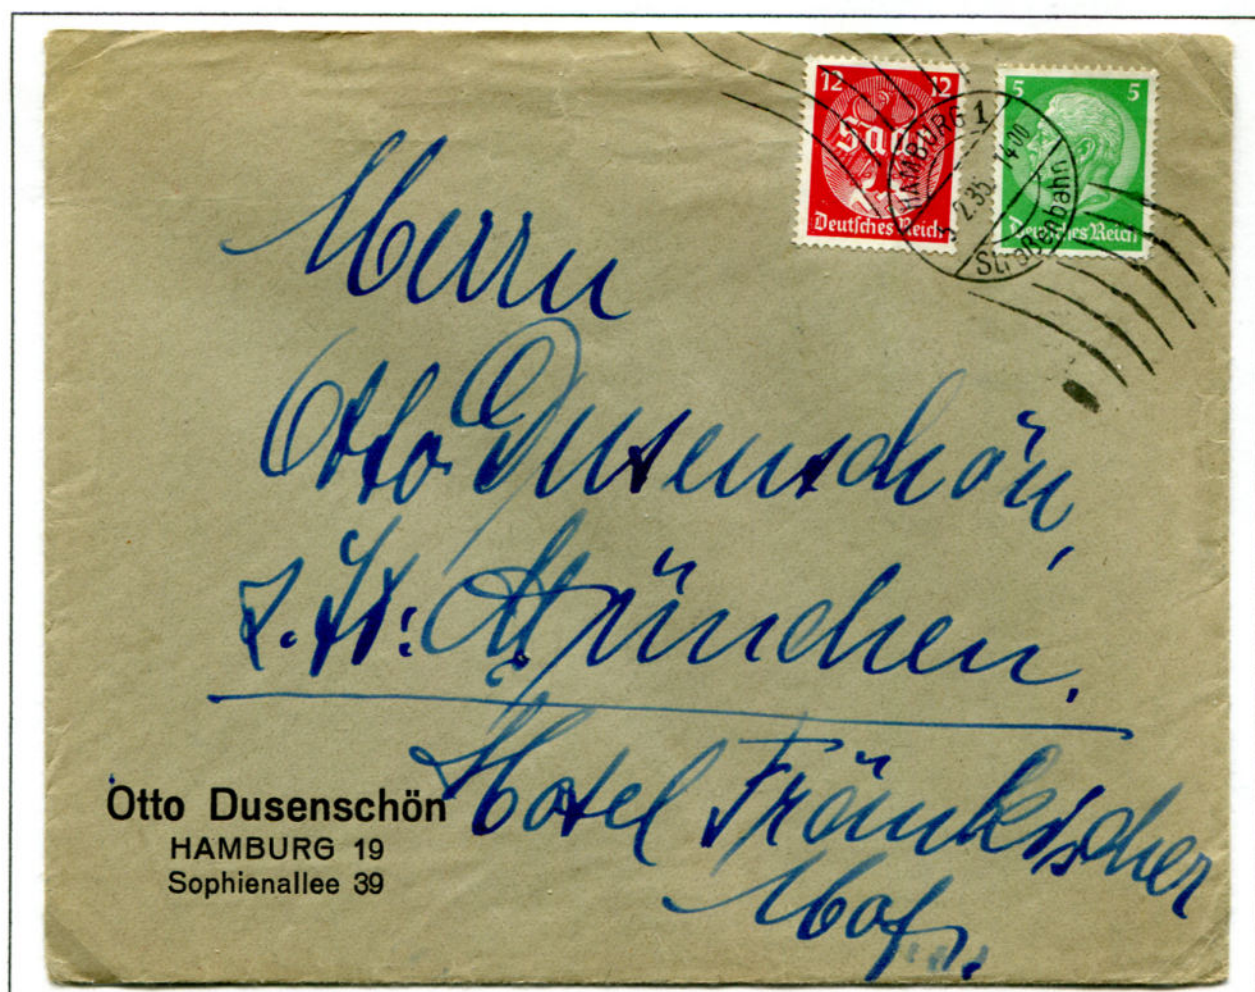 12 12
Saar
Deutsches Reich
5 5
Deutsches Reich
HAMBURG 1
2.35. 14 00
Straßenbahn
Herrn
Otto Dusenschön,
z. Zt: München.
Hotel Fränkischer
Hof.
Otto Dusenschön
HAMBURG 19
Sophienallee 39